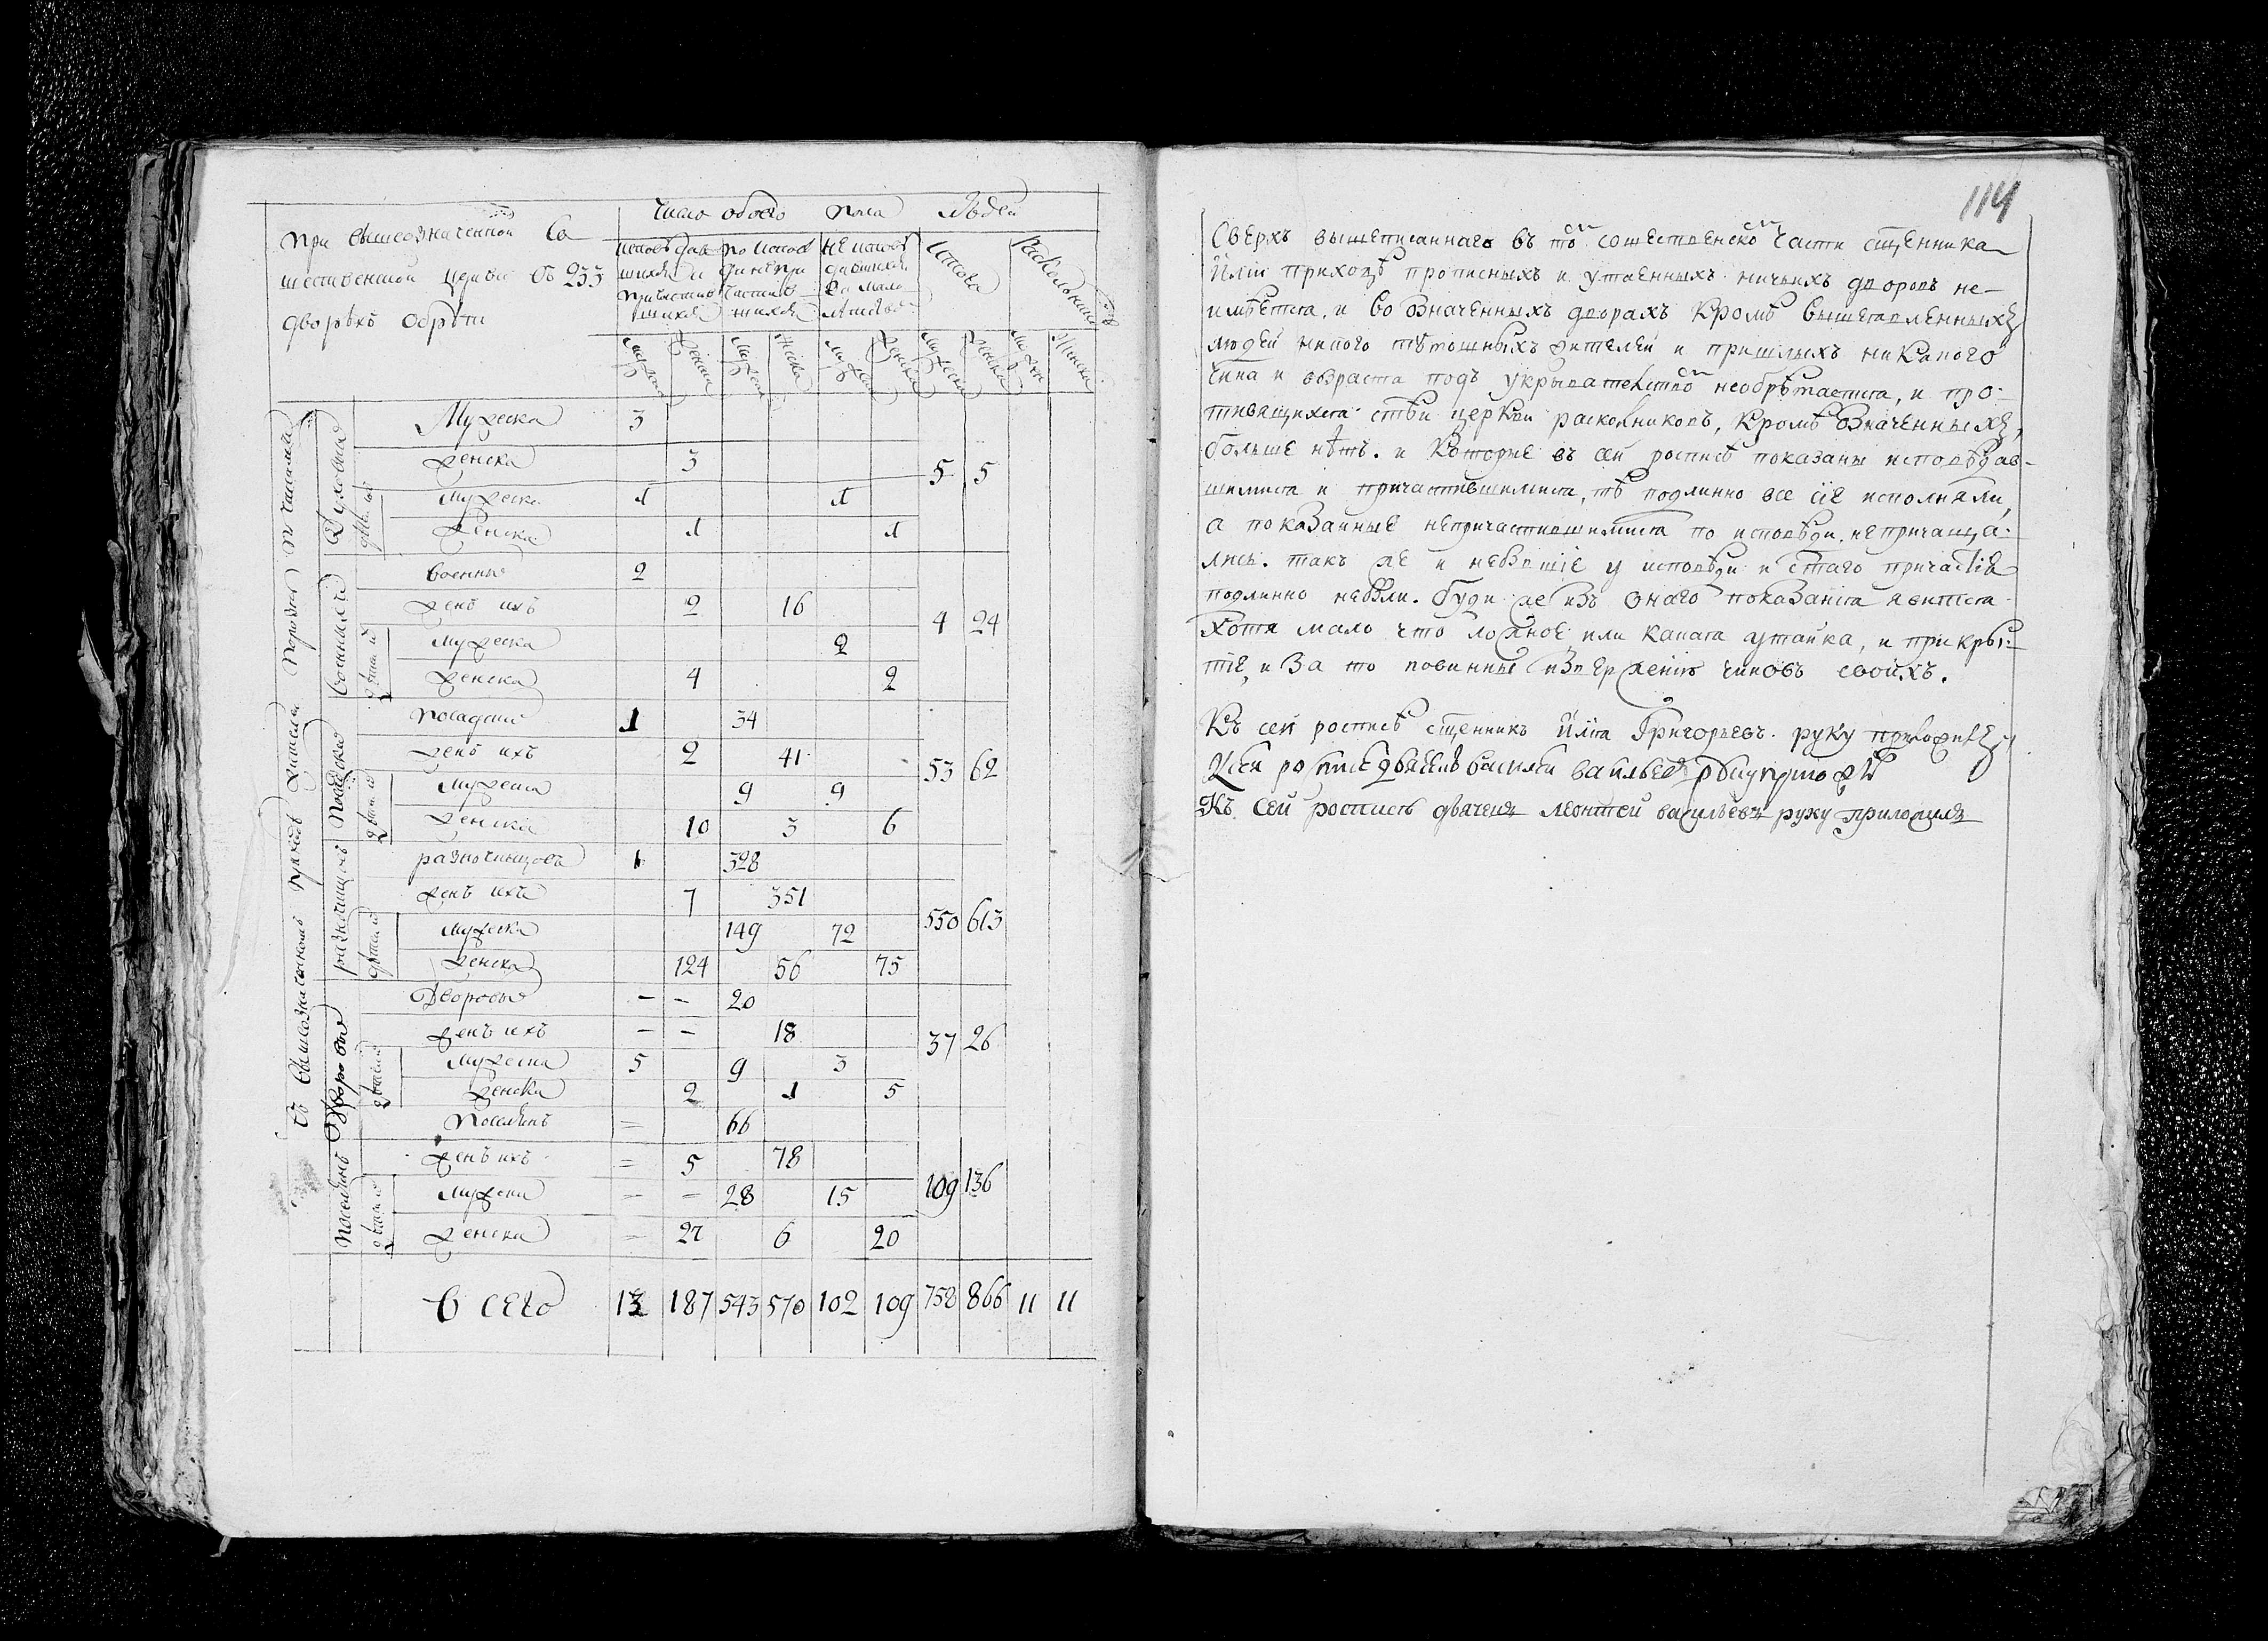 При вышеозначенной Со
шественской церкви въ 233
дворѣхъ обрѣта
Число обоего пола людей
исповѣдав
шихся и
причастив
шихся
по испов
ди не при
частив
шихся
не испов
давшихся
за мало
лѣтством
Итого
Раскольниковъ
мужска женска мужска женска мужска женска мужска женска мужска женска
Мужеска 3
женска 3 5 5
мужеска 1 1
женска 1 1
военных 2
женъ ихъ 2 16 4 24
мужеска 2
женска 4 2
посадских 1 34
женъ ихъ 2 41 53 62
мужеска 9 9
женска 10 3 6
разночинцовъ 1 328
женъ ихъ 7 351
мужеска 149 72 550 613
женска 124 56 75
Дворовых – – 20
женъ ихъ – – 18 37 26
мужеска 5 9 3
женска 2 1 5
поселянъ = 66
женъ ихъ = 5 78
мужеска – – 28 15 109 136
женска – 27 6 20
Всего 13 187 543 570 102 109 758 866 11 11
114
Сверхъ вышеписаннаго въ той сошественской части сщенника
Иліи приходѣ прописныхъ и утаенныхъ ничьихъ дворовъ не-
имѣется, и во означенныхъ дворахъ кромѣ вышеявленныхъ
людей никого тутошныхъ жителей и пришлыхъ никакого
чина и возраста подъ укрывательствомъ необрѣтается, и про-
тивящихся стѣй церкви расколниковъ, кромѣ означенныхъ,
больше нѣтъ. и которые въ сей росписѣ показаны исповѣдав-
шимися и причастившимися, тѣ подлинно все сіе исполняли,
а показанные непричастившимися по исповѣди. непричаща-
лись. такъ же и небывшіе у исповѣди и стаго причастія
подлинно небыли. буди же изъ онаго показанія явится
хотя мало что ложное или какая утайка, и прикры-
тіе, и за то повинны изверженію чиновъ своихъ.
Къ сей росписѣ сщенникъ Илія Григорьевъ. руку приложилъ
К сей росписѣ дьячекъ василей васильевъ руку приложилъ
Къ сей росписѣ дьячекъ леонтей васильевъ руку приложилъ